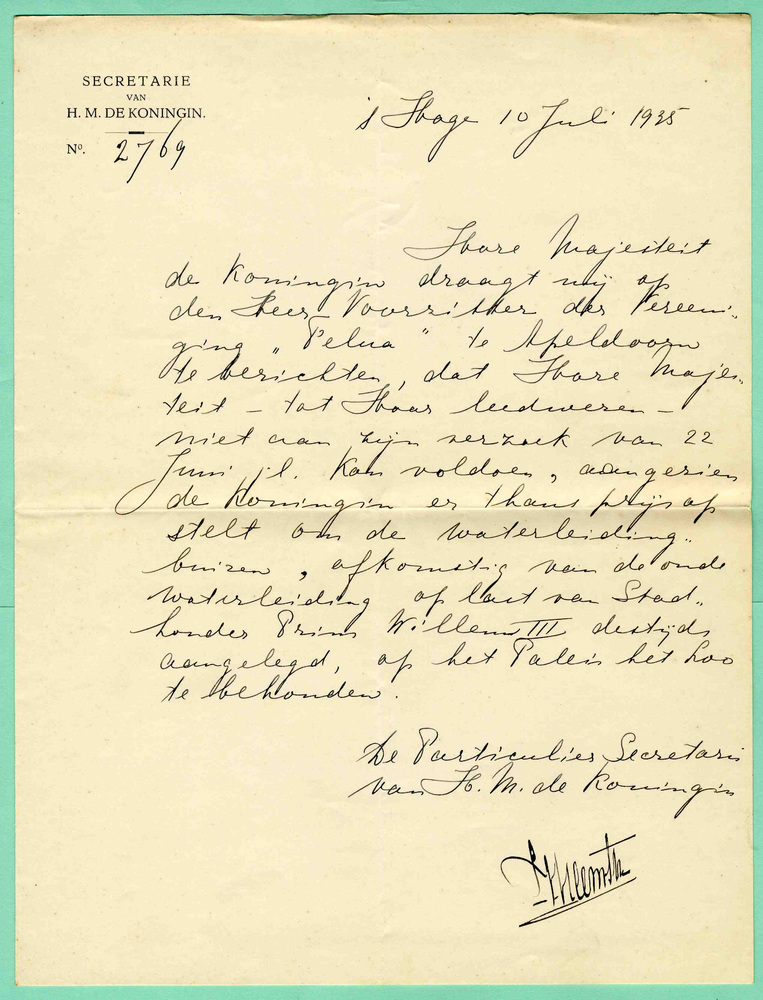 SECRETARIE
VAN
H. M. DE KONINGIN.
Nº. 2769
's Hage 10 Juli 1935
Hare Majesteit
de Koningin draagt mij op
den Heer Voorzitter der Vereeni-
ging „Felua" te Apeldoorn
te berichten, dat Hare Majes-
teit – tot Haar leedwezen –
niet aan zijn verzoek van 22
Juni j.l. kan voldoen, aangezien
de Koningin er thans prijs op
stelt om de waterleiding-
buizen, afkomstig van de oude
waterleiding op last van Stad-
houder Prins Willem III destijds
aangelegd, op het Paleis het Loo
te behouden.
De Particulier Secretaris
van H. M. de Koningin